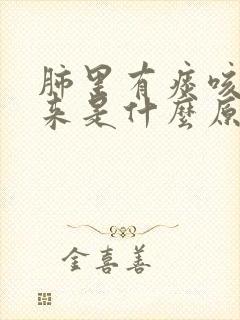 肺里有痰咳
来是什麼原
金喜善